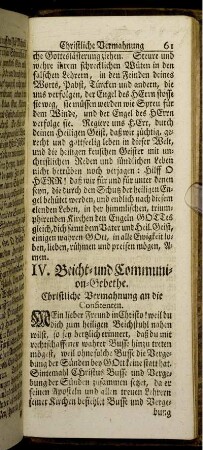 Christliche Vermahnung 61
che Gotteslästerung ziehen. Steure und
wehre ihrem schrecklichen Wüten in den
falschen Lehrern, in den Feinden deines
Worts, Pabst, Türcken und andern, die
uns verfolgen, der Engel des HErrn stosse
sie weg, sie müssen werden wie Spreu für
dem Winde, und der Engel des HErrn
verfolge sie. Regiere uns HErr, durch
deinen Heiligen Geist, daß wir züchtig, ge
recht und gottselig leben in dieser Welt,
und die heiligen keuschen Geister mit un-
christlichen Reden und sündlichen Leben
nicht betrüben noch verjagen: Hilff O
HERR! daß wir für und für unter denen
seyn, die durch den Schutz der heiligen En-
gel behütet werden, und endlich nach diesem
elenden Leben, in der himmlischen, trium-
phirenden Kirchen den Engeln GOTTes
gleich, dich samt dem Vater und Heil. Geist,
einigen wahren GOtt, in alle Ewigkeit lo-
ben, lieben, rühmen und preisen mögen, A-
men.
IV. Beicht- und Communi-
on-Gebethe.
Christliche Vermahnung an die
Confitenten.
MEin lieber Freund in Christo! weil du
dich zum heiligen Beichtstuhl nahen
wilst, so sey hertzlich erinnert, daß du mit
rechtschaffener wahrer Busse hinzu treten
mögest, weil ohne solche Busse die Verge-
bung der Sünden bey GOtt keine statt hat.
Sintemahl Christus Busse und Verge-
bung der Sünden zusammen setzet, da er
seinen Aposteln und allen treuen Lehrern
seiner Kirchen befiehlet Busse und Verge-
bung